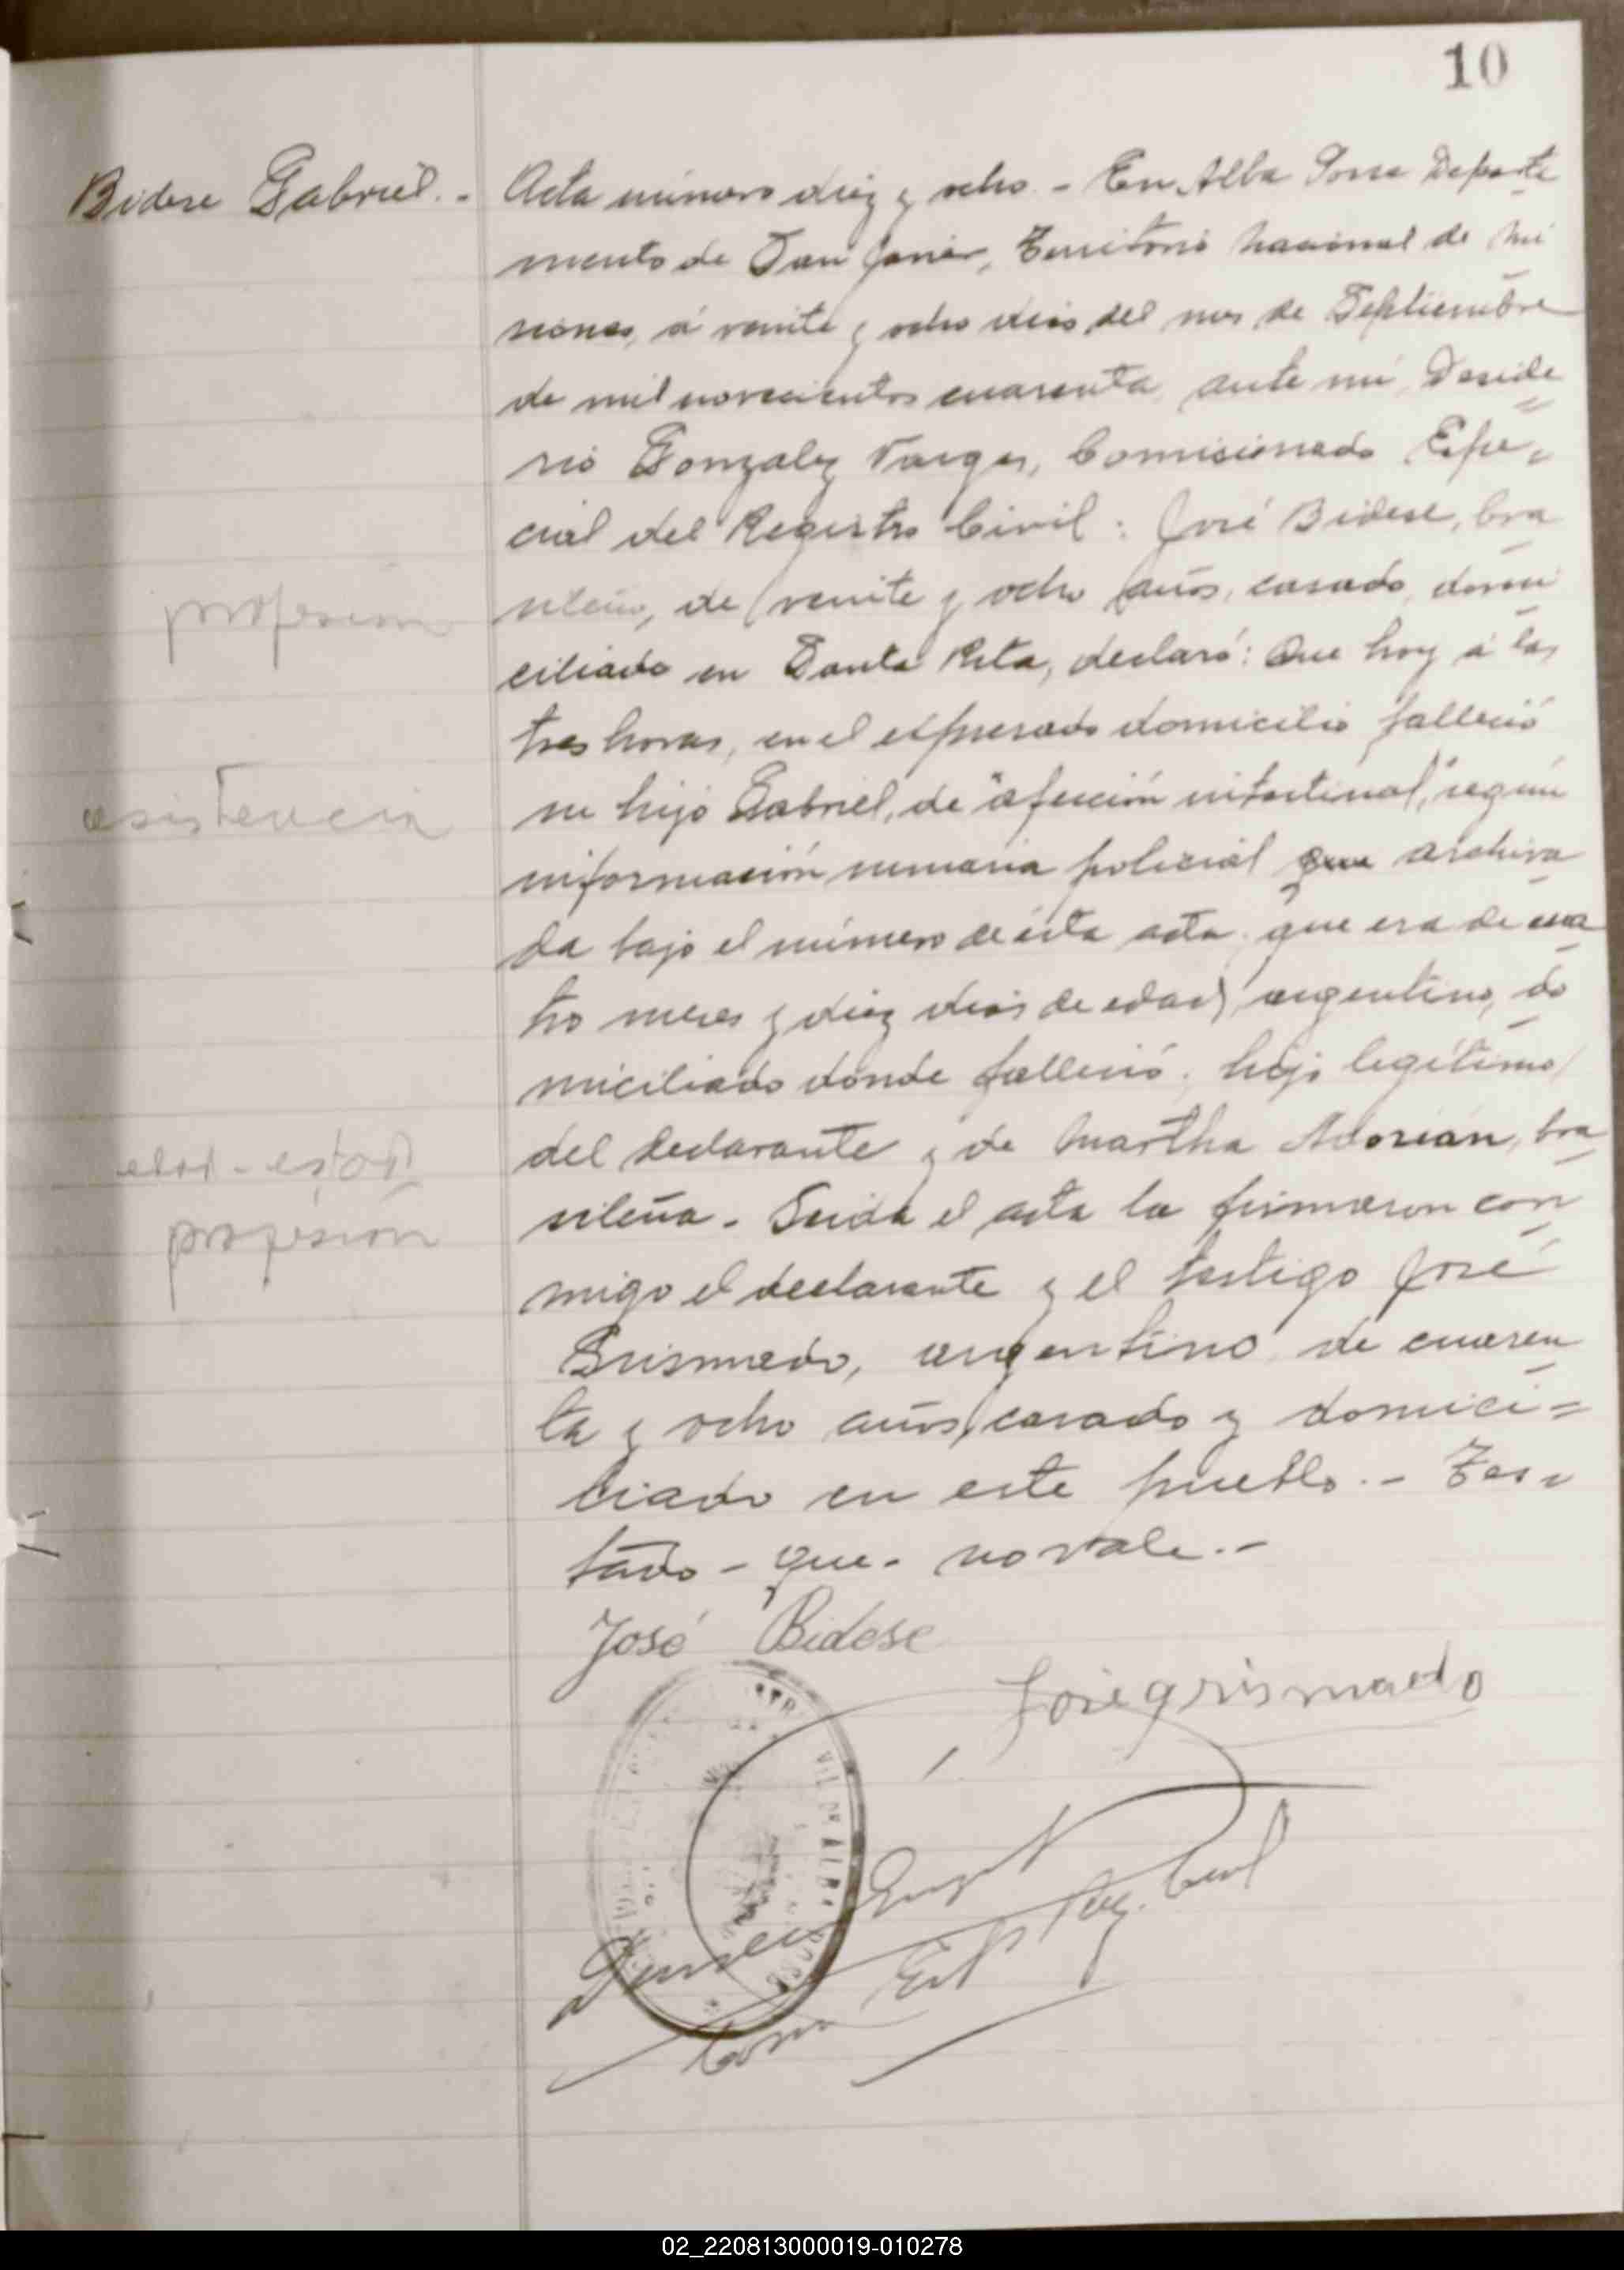 10
Bidese Gabriel.-
Acta número diez y ocho.- En Alba Posse Departa
mento de San Javier, Territorio Nacional de Mi
siones, á veinte y ocho dias del mes de Septiembre
de mil novecientos cuarenta, ante mi, Deside
rio Gonzalez Vargas, Comisionado Espe=
cial del Registro Civil: José Bidese, bra
sileño, de veinte y ocho años, casado, domi
profesion
ciliado en Santa Rita, declaró: Que hoy á las
tres horas, en el expresado domicilio falleció
su hijo Gabriel, de "afección intestinal", según
asistencia
información sumaria policial que archiva
da bajo el número de ésta acta. que era de cua
tro meses y diez dias de edad, argentino, do
miciliado donde falleció. hijo legítimo
del declarante y de Martha Adorián, bra
edad-estad
sileña.- Leida el acta la firmaron con
profesión
migo el declarante y el testigo José
Grismado, argentino de cuaren
ta y ocho años, casado y domici=
liado en este pueblo.- Tes=
tado - que - no vale.-
José Bidese
José grismado
Com Esp Reg. Civil